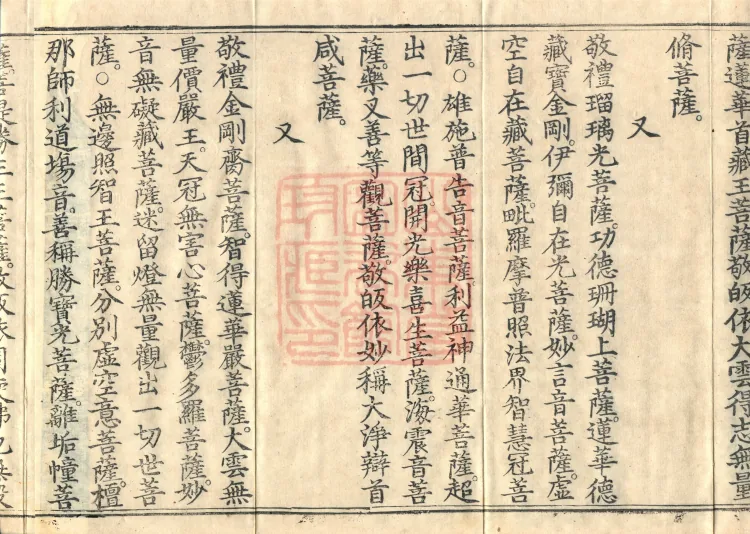 薩蓮華首藏王菩薩敬皈依大雲得志無量
脩菩薩。
又
敬禮瑠璃光菩薩。功德珊瑚上菩薩。蓮華德
藏寶金剛。伊彌自在光菩薩。妙言音菩薩。虛
空自在藏菩薩。毗羅摩普照法界智慧冠菩
薩。○雄施普告音菩薩。利益神通華菩薩。超
出一切世間冠。開光樂喜生菩薩。海震音菩
薩。藥叉善等觀菩薩。敬皈依妙稱大淨辯首
咸菩薩。
又
敬禮金剛齋菩薩。智得蓮華嚴菩薩。大雲無
量價嚴王。天冠無害心菩薩。鬱多羅菩薩。妙
音無礙藏菩薩。迷留燈無量觀出一切世菩
薩。○無邊照智王菩薩。分別虛空意菩薩。檀
那師利道場音。善稱勝寶光菩薩。離垢幢菩